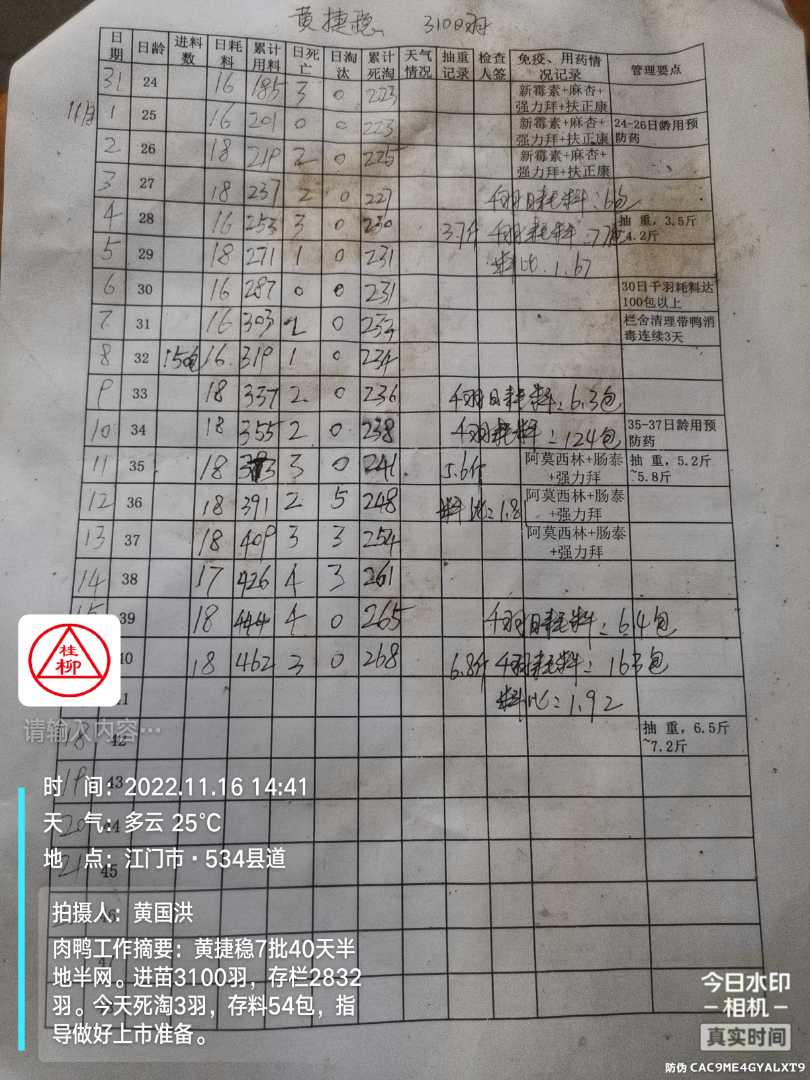 黄捷稳 3100羽
日期 日龄 进料数 日耗料 累计用料 日死亡 日淘汰 累计死淘 天气情况 抽重记录 检查人签 免疫、用药情况记录 管理要点
31 24 16 185 3 0 223 新霉素+麻杏+强力拜+扶正康
11月 1 25 16 201 0 0 223 新霉素+麻杏+强力拜+扶正康 24-26日龄用预防药
2 26 18 219 2 0 225 新霉素+麻杏+强力拜+扶正康
3 27 18 237 2 0 227 千羽日耗料:6包
4 28 16 253 3 0 230 3.7斤 千羽耗料: 抽 重，3.5斤~4.2斤
5 29 18 271 1 0 231 料比:1.67
6 30 16 287 0 0 231 30日千羽耗料达100包以上
7 31 16 303 2 0 233 栏舍清理带鸭消毒连续3天
8 32 150包 16 319 1 0 234
9 33 18 337 2 0 236 千羽日耗料:6.3包
10 34 18 355 2 0 238 千羽耗料:124包 35-37日龄用预防药
11 35 18 373 3 0 241 5.6斤 阿莫西林+肠泰+强力拜 抽 重，5.2斤~5.8斤
12 36 18 391 2 5 248 料比:1.8 阿莫西林+肠泰+强力拜
13 37 18 409 3 3 254 阿莫西林+肠泰+强力拜
14 38 17 426 4 3 261
15 39 18 444 4 0 265 千羽日耗料:6.4包
40 18 462 3 0 268 6.8斤 千羽耗料:163包
41 料比:1.92
18 42 抽 重，6.5斤~7.2斤
19 43
20 44
21 45
47
桂柳
请输入内容…
时 间：2022.11.16 14:41
天 气：多云 25℃
地 点：江门市·534县道
拍摄人：黄国洪
肉鸭工作摘要：黄捷稳7批40天半
地半网。进苗3100羽，存栏2832
羽。今天死淘3羽，存料54包，指
导做好上市准备。
今日水印
相机
真实时间
防伪 CAC9ME4GYALXT9